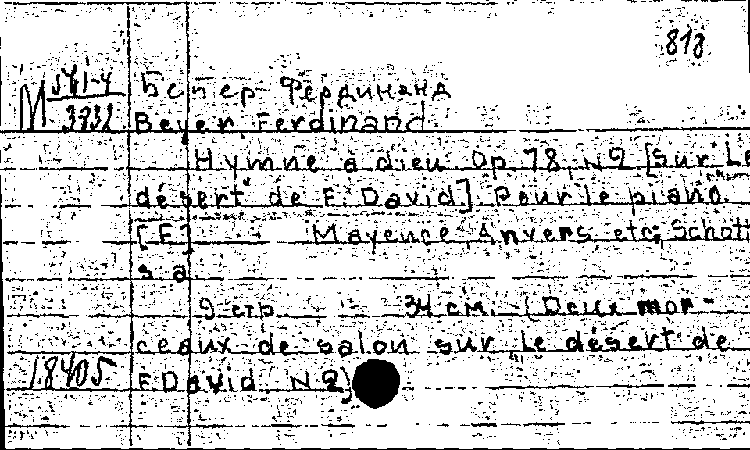 813
М 541-4
3932
Бейер Фердинанд
Beyer, Ferdinand.
Hymne a dieu. Op. 78, N2 [sur "Le
désert" de F. David]. Pour le piano.
[F] Mayence, Anvers, etc; Schott
s. a.
9 стр. 34 см. (Deux mor-
ceaux de salon sur "Le désert" de
F. David. N2)
18405